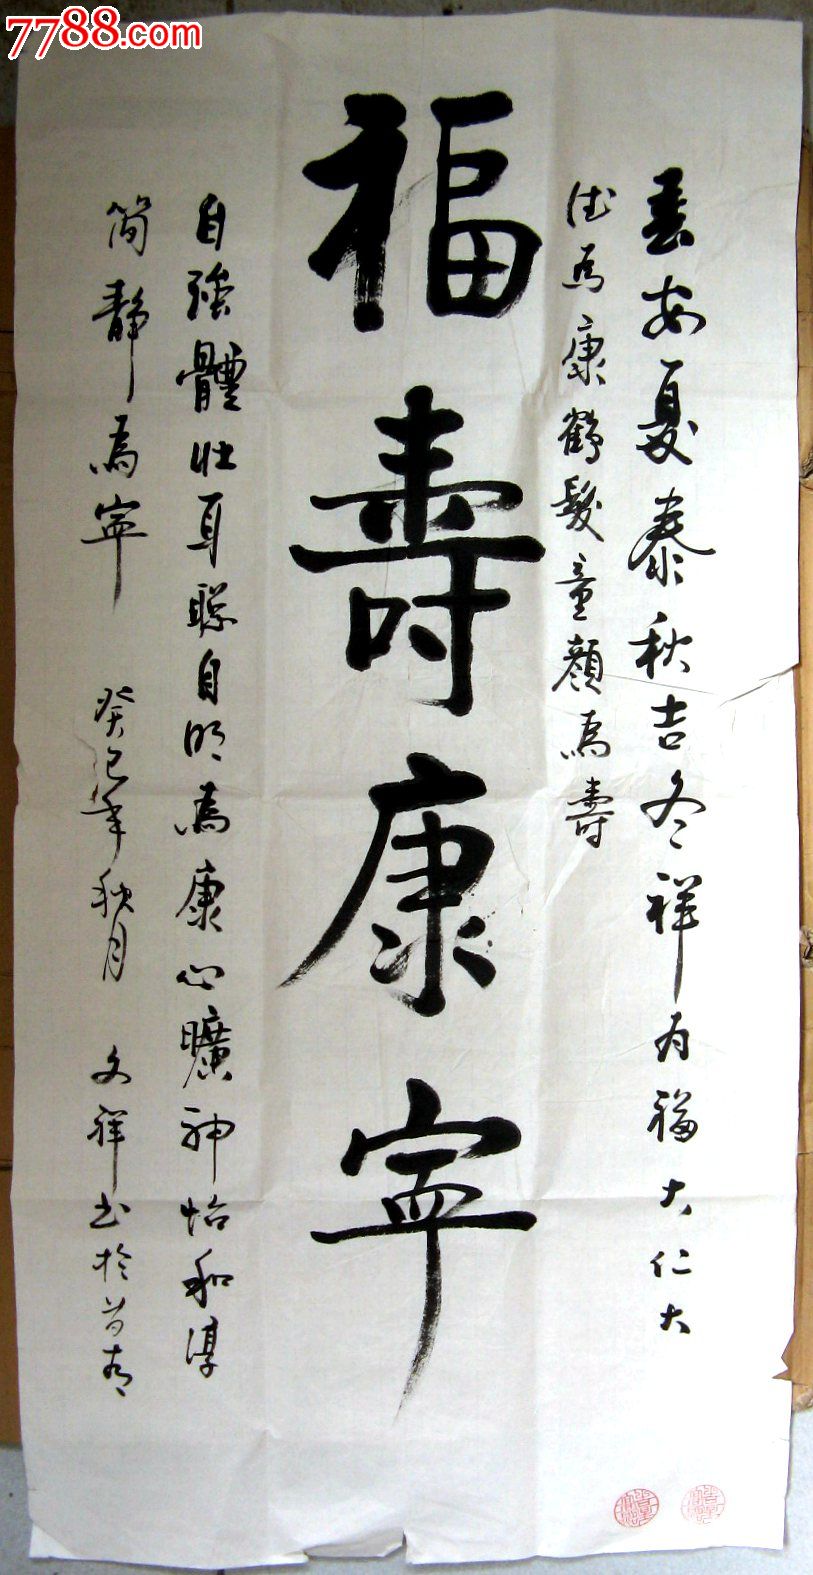 7788.com
春安夏泰秋吉冬祥为福大仁大
德為康鶴髮童顏為壽
福壽康寧
自強體壯耳聰自明為康心曠神怡和淳
简靜為寧 癸巳年秋月 文祥书於首都